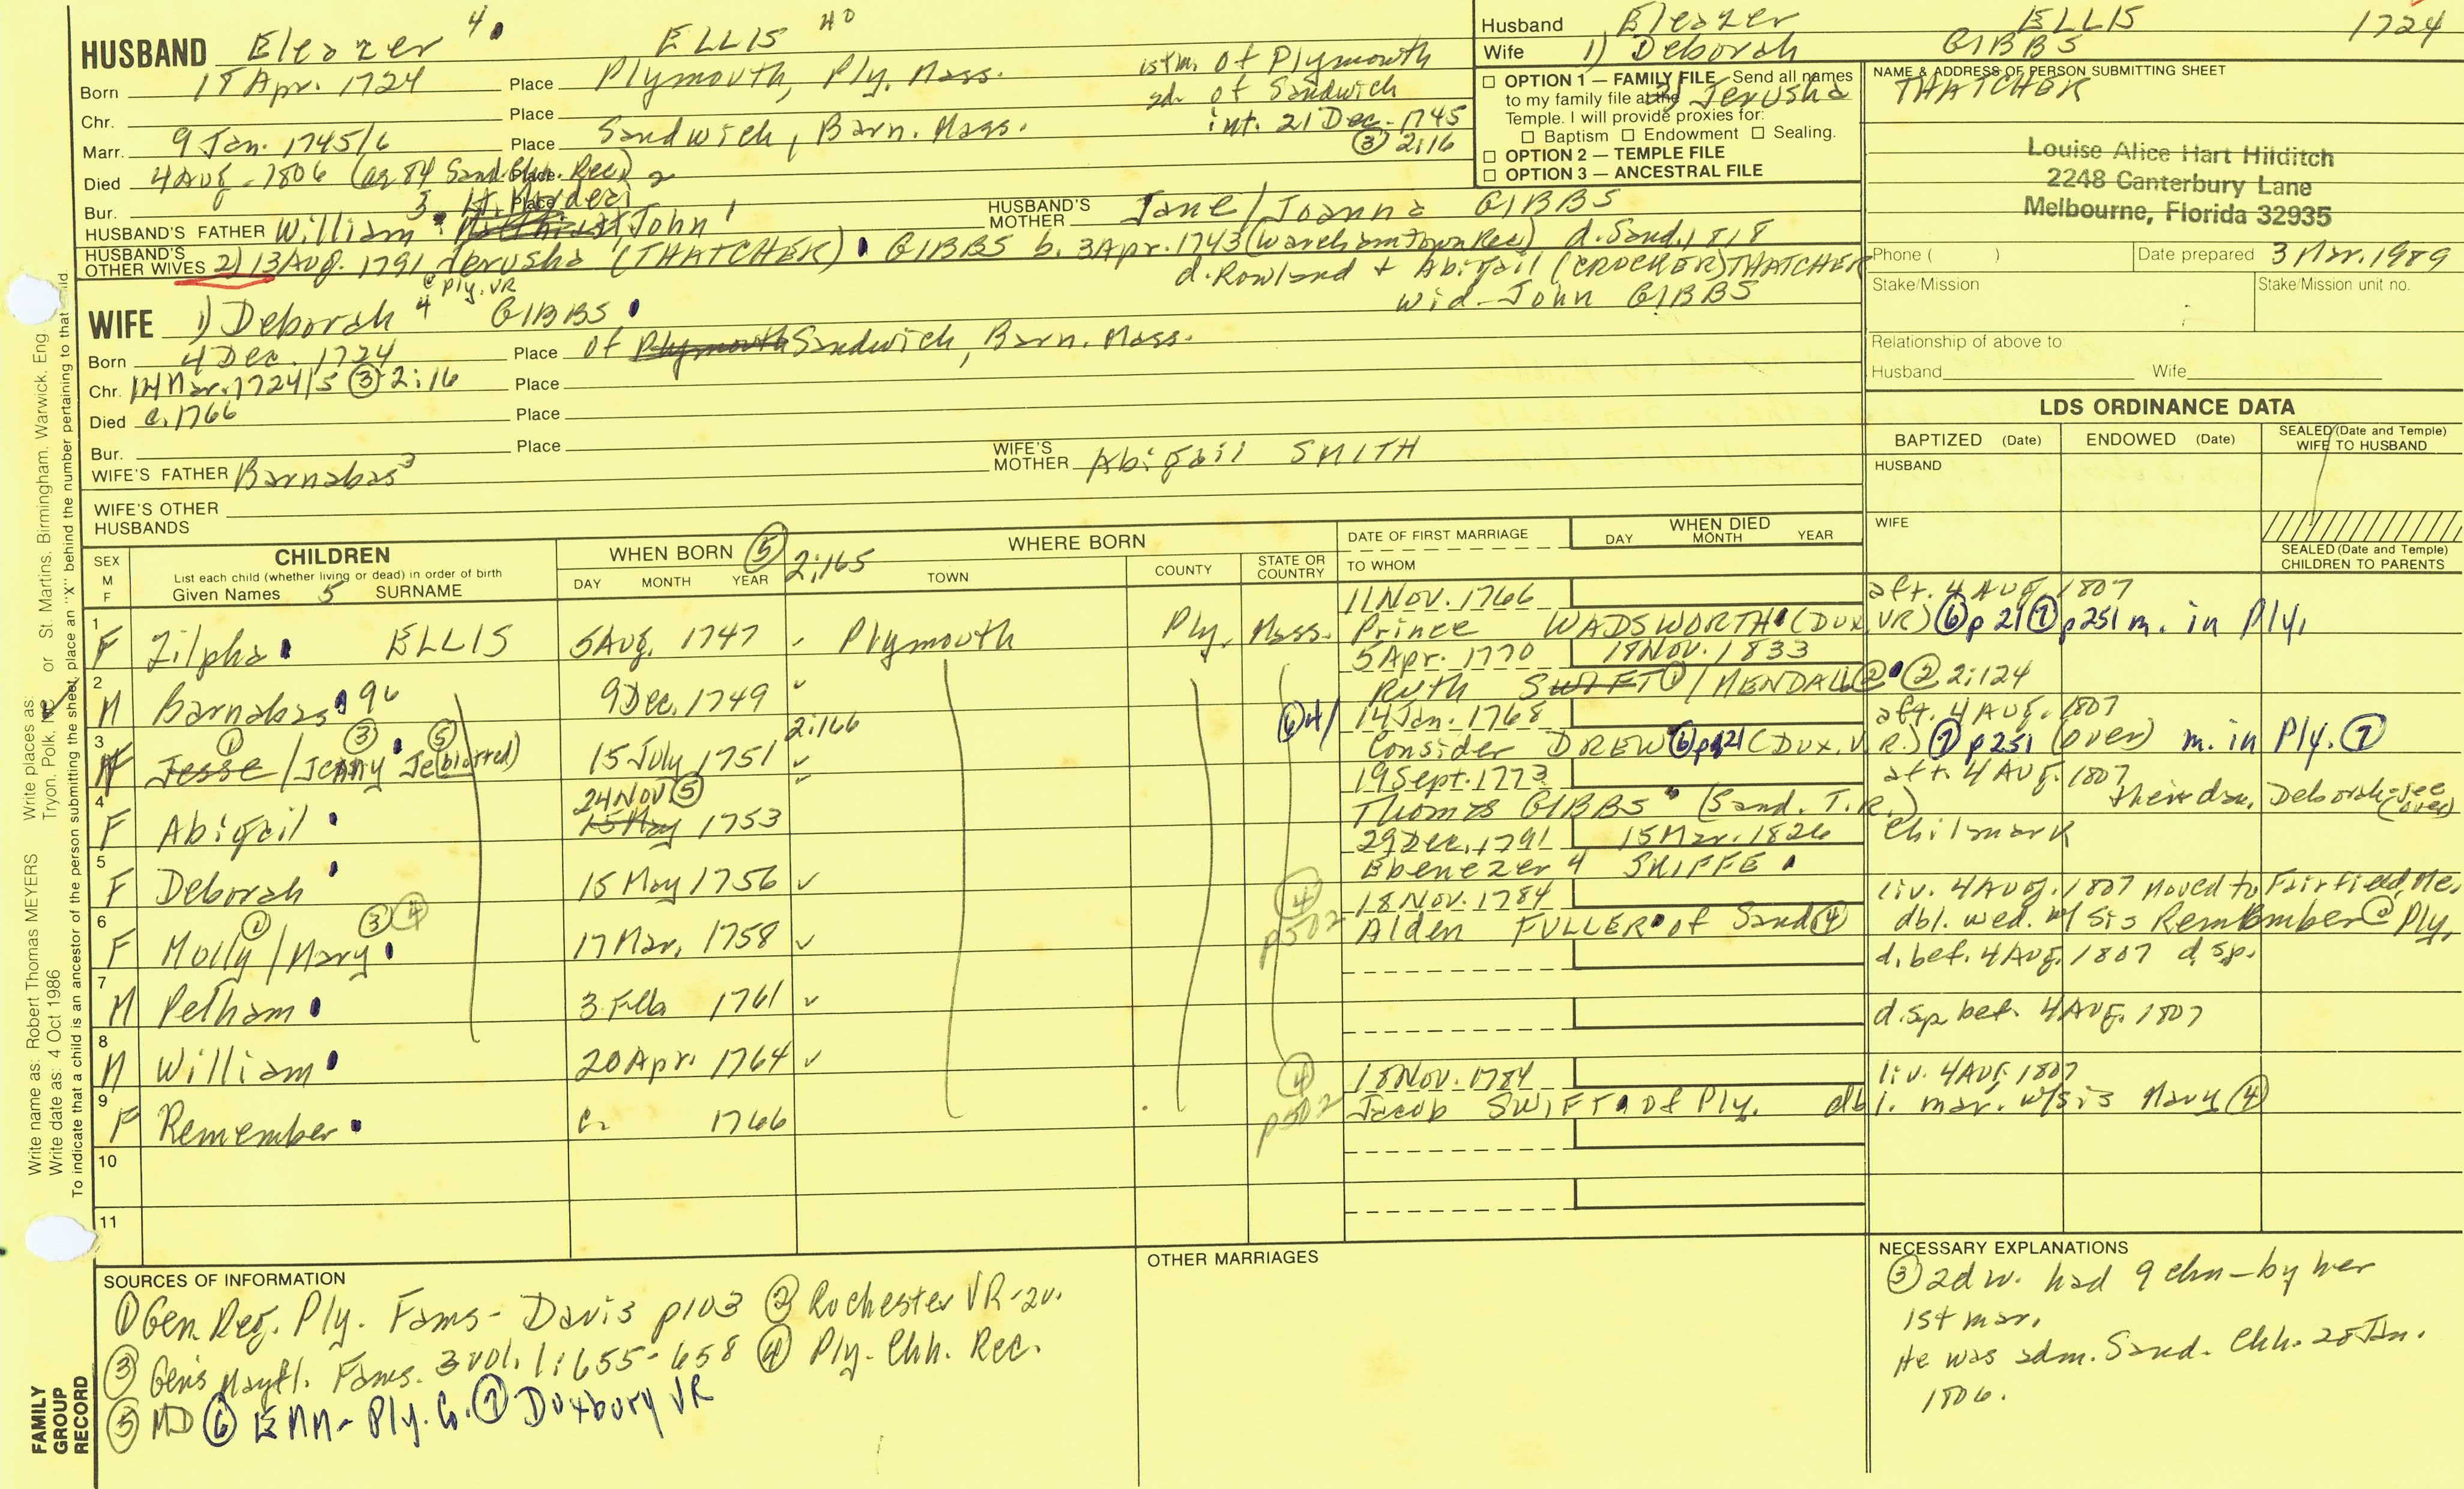 HUSBAND Eleazer 4 ELLIS 40
Born 18 Apr. 1724 Place Plymouth, Ply. Mass. 1st m. of Plymouth
Chr. Place 2d. of Sandwich
Marr. 9 Jan. 1745/6 Place Sandwich, Barn. Mass. int. 21 Dec. 1745
③ 2:16
Died 4 Aug. 1806 (ae 84 Sand. Chh. Rec.) Place
Bur. Place
HUSBAND'S FATHER William 3 John 1 HUSBAND'S MOTHER Jane/Joanna GIBBS
HUSBAND'S OTHER WIVES 2) 13 Aug. 1791 Jerusha (THATCHER) GIBBS b. 3 Apr. 1743 (Wareham Town Rec) d. Sand. 1818
@ Ply. VR d. Rowland + Abigail (CROCKER) THATCHER
wid. John GIBBS
WIFE 1) Deborah 4 GIBBS
Born 4 Dec. 1724 Place of Plymouth Sandwich, Barn. Mass.
Chr. 14 Mar. 1724/5 ③ 2:16 Place
Died c. 1766 Place
Bur. Place
WIFE'S FATHER Barnabas 3 WIFE'S MOTHER Abigail SMITH
WIFE'S OTHER HUSBANDS
Husband Eleazer ELLIS 1724
Wife 1) Deborah GIBBS
2) Jerusha THATCHER
☐ OPTION 1 — FAMILY FILE Send all names
to my family file at the
Temple. I will provide proxies for:
☐ Baptism ☐ Endowment ☐ Sealing.
☐ OPTION 2 — TEMPLE FILE
☐ OPTION 3 — ANCESTRAL FILE
NAME & ADDRESS OF PERSON SUBMITTING SHEET
Louise Alice Hart Hilditch
2248 Canterbury Lane
Melbourne, Florida 32935
Phone ( ) Date prepared 3 Mar. 1989
Stake/Mission Stake/Mission unit no.
Relationship of above to:
Husband Wife
LDS ORDINANCE DATA
BAPTIZED (Date) ENDOWED (Date) SEALED (Date and Temple) WIFE TO HUSBAND
HUSBAND
WIFE
SEALED (Date and Temple) CHILDREN TO PARENTS
SEX M F
CHILDREN
List each child (whether living or dead) in order of birth
Given Names 5 SURNAME
WHEN BORN ⑤ 2:165
DAY MONTH YEAR
WHERE BORN
TOWN COUNTY STATE OR COUNTRY
DATE OF FIRST MARRIAGE
TO WHOM
WHEN DIED
DAY MONTH YEAR
1 F Zilpha ELLIS 5 Aug. 1747 Plymouth Ply. Mass. 11 Nov. 1766 aft. 4 Aug. 1807
Prince WADSWORTH (DUX. VR) ⑥ p 21 ⑦ p251 m. in Ply.
2 M Barnabas 96 9 Dec. 1749 ✓ 5 Apr. 1770 18 Nov. 1833
Ruth SWIFT ① / MENDALL ② ② 2:124
3 F Jesse ① / Jenny ③ Je(blotted) ⑤ 15 July 1751 ✓ 2:166 14 Jan. 1768 aft. 4 Aug. 1807
Consider DREW ⑥ p 21 (DUX. V.R.) ⑦ p251 (over) m. in Ply. ⑦
4 F Abigail 24 Nov ⑤ 15 May 1753 19 Sept. 1773 aft. 4 Aug. 1807
Thomas GIBBS (Sand. T.R.) their dau. Deborah - see (over)
5 F Deborah 15 May 1756 ✓ 29 Dec. 1791 15 Mar. 1826 Chilmark
Ebenezer 4 SKIFFE
6 F Molly ① / Mary ③ ④ 17 Mar. 1758 ✓ ④ p502 18 Nov. 1784 liv. 4 Aug. 1807 moved to Fairfield, Me.
Alden FULLER of Sand ④ dbl. wed. w/ sis Remember @ Ply.
7 M Pelham 3 Feb 1761 ✓ d. bef. 4 Aug. 1807 d. sp.
8 M William 20 Apr. 1764 ✓ d. sp. bef. 4 Aug. 1807
9 F Remember c. 1766 ④ p502 18 Nov. 1784 liv. 4 Aug. 1807
Jacob SWIFT of Ply. dbl. mar. w/sis Mary ④
10
11
SOURCES OF INFORMATION
① Gen Reg. Ply. Fams - Davis p103 ② Rochester VR - 2v.
③ Gen's Mayfl. Fams. 3 vol. 1:655-658 ④ Ply. Chh. Rec.
⑤ MD ⑥ EMM - Ply. Co. ⑦ Duxbury VR
OTHER MARRIAGES
NECESSARY EXPLANATIONS
③ 2d w. had 9 chn - by her
1st mar.
He was adm. Sand. Chh. 28 Jan.
1806.
FAMILY GROUP RECORD
Write name as: Robert Thomas MEYERS Write places as:
Write date as: 4 Oct 1986 Tryon, Polk, NC or St. Martins, Birmingham, Warwick, Eng
To indicate that a child is an ancestor of the person submitting the sheet, place an "X" behind the number pertaining to that child.